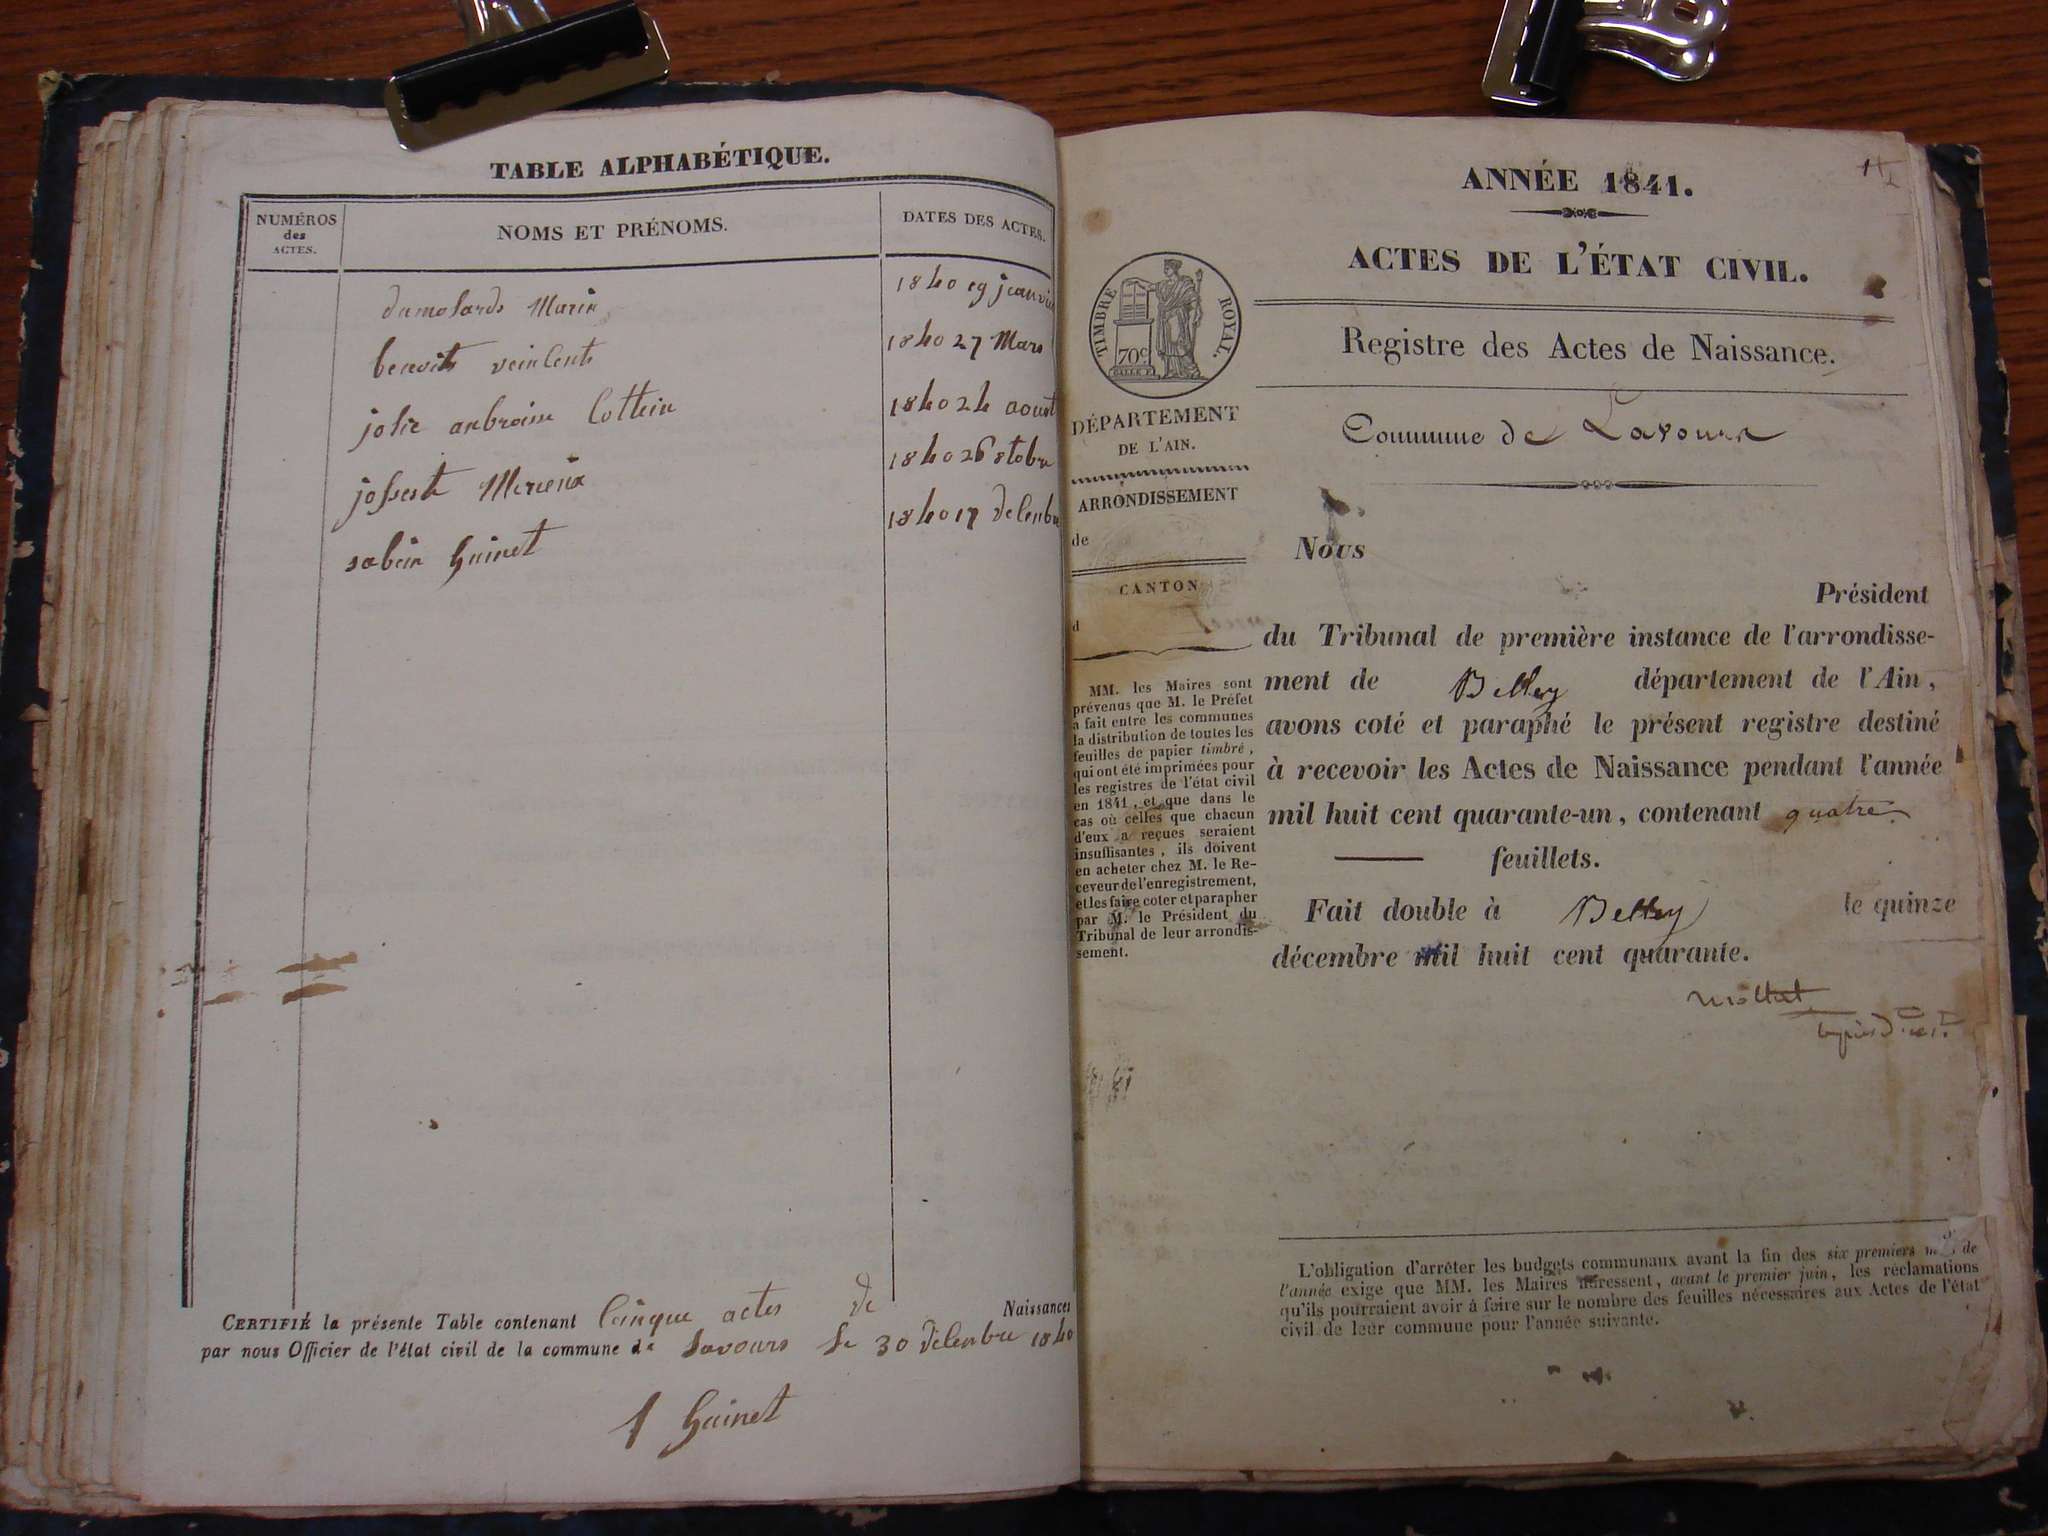 TABLE ALPHABÉTIQUE.
NUMÉROS
des
ACTES.
NOMS ET PRÉNOMS.
DATES DES ACTES.
dumolards Marie
1840 19 janvier
benoits veincents
1840 27 Mars
jolie anbroise Cottein
1840 24 aoust
josseste Merieux
1840 26 8tobre
sabein Guinet
1840 17 decenbre
CERTIFIÉ la présente Table contenant Cainque actes de Naissances
par nous Officier de l'état civil de la commune de Savours Le 30 décenbre 1840
Guinet
ANNÉE 1841.
ACTES DE L'ÉTAT CIVIL.
Registre des Actes de Naissance.
Commune de Lavours
TIMBRE ROYAL.
70c
DÉPARTEMENT
DE L'AIN.
ARRONDISSEMENT
de
CANTON
d
MM. les Maires sont
prévenus que M. le Préfet
a fait entre les communes
la distribution de toutes les
feuilles de papier timbré,
qui ont été imprimées pour
les registres de l'état civil
en 1841, et que dans le
cas où celles que chacun
d'eux a reçues seraient
insuffisantes, ils doivent
en acheter chez M. le Re-
ceveur de l'enregistrement,
et les faire coter et parapher
par M. le Président du
Tribunal de leur arrondis-
sement.
Nous
Président
du Tribunal de première instance de l'arrondisse-
ment de Belley département de l'Ain,
avons coté et paraphé le présent registre destiné
à recevoir les Actes de Naissance pendant l'année
mil huit cent quarante-un, contenant quatre
feuillets.
Fait double à Belley le quinze
décembre mil huit cent quarante.
L'obligation d'arrêter les budgets communaux avant la fin des six premiers de
l'année exige que MM. les Maires adressent, avant le premier juin, les réclamations
qu'ils pourraient avoir à faire sur le nombre des feuilles nécessaires aux Actes de l'état
civil de leur commune pour l'année suivante.